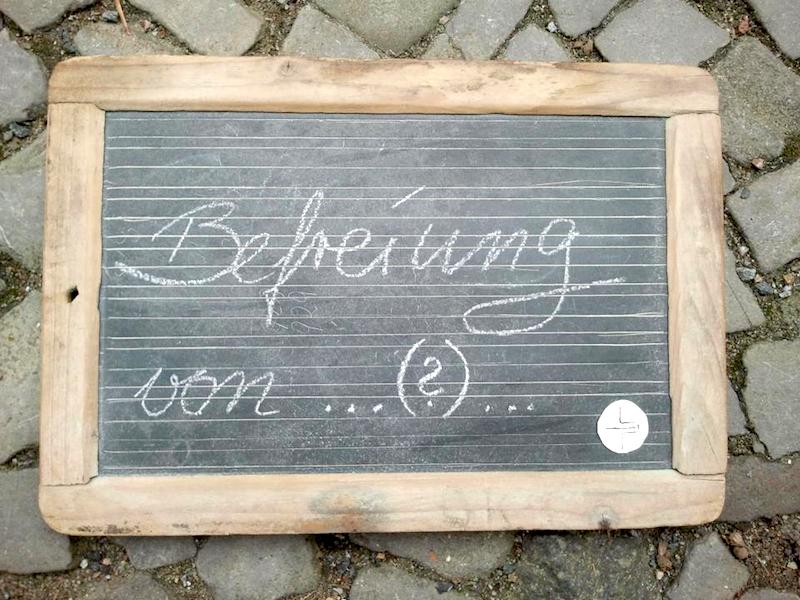 Befreiung
von ...(?)...